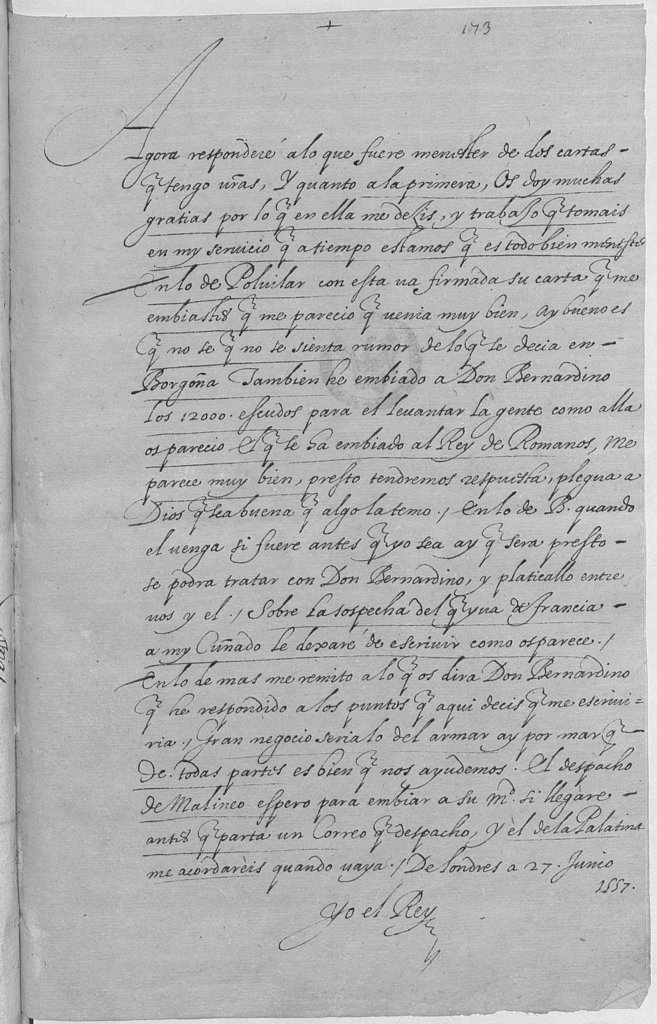 + 173
Agora respondere alo que fuere menester de dos cartas
q̃ tengo vr̃as, Y quanto ala primera, Os doy muchas
gratias por lo q̃ en ella me dezis, y trabajo q̃ tomais
en my servicio q̃ a tiempo estamos q̃ es todo bien meneste
Enlo de Polvilar con esta va firmada su carta q̃ me
embiastes q̃ me parecio q̃ venia muy bien, ay bueno es
q̃ no se q̃ no se sienta rumor de lo q̃ se decia en
Borgoña Tambien he embiado a Don Bernardino
los 12000. escudos para el levantar la gente como alla
os parecio El q̃ se ha embiado al Rey de Romanos, me
parece muy bien, presto tendremos respuesta, plegua a
Dios q̃ sea buena q̃ algo la temo./ Enlo de B. quando
el venga si fuere antes q̃ yo sea ay q̃ sera presto
se podra tratar con Don Bernardino, y platicallo entre
vos y el./ Sobre la sospecha del q̃ yva de francia
a my Cuñado le dexaré de escrivir como os parece./
Enlo de mas me remito a lo q̃ os dira Don Bernardino
q̃ he respondido a los puntos q̃ aqui decis q̃ me escrivi=
ria./ Gran negocio seria lo del armar ay por mar q̃
de todas partes es bien q̃ nos ayudemos! El despacho
de Malineo espero para embiar a su Md. si llegare
antes q̃ parta un Correo q̃ despacho, y el dela Palatina
me acordareis quando vaya./ De londres a 27. Junio
1557.
Yo el Rey